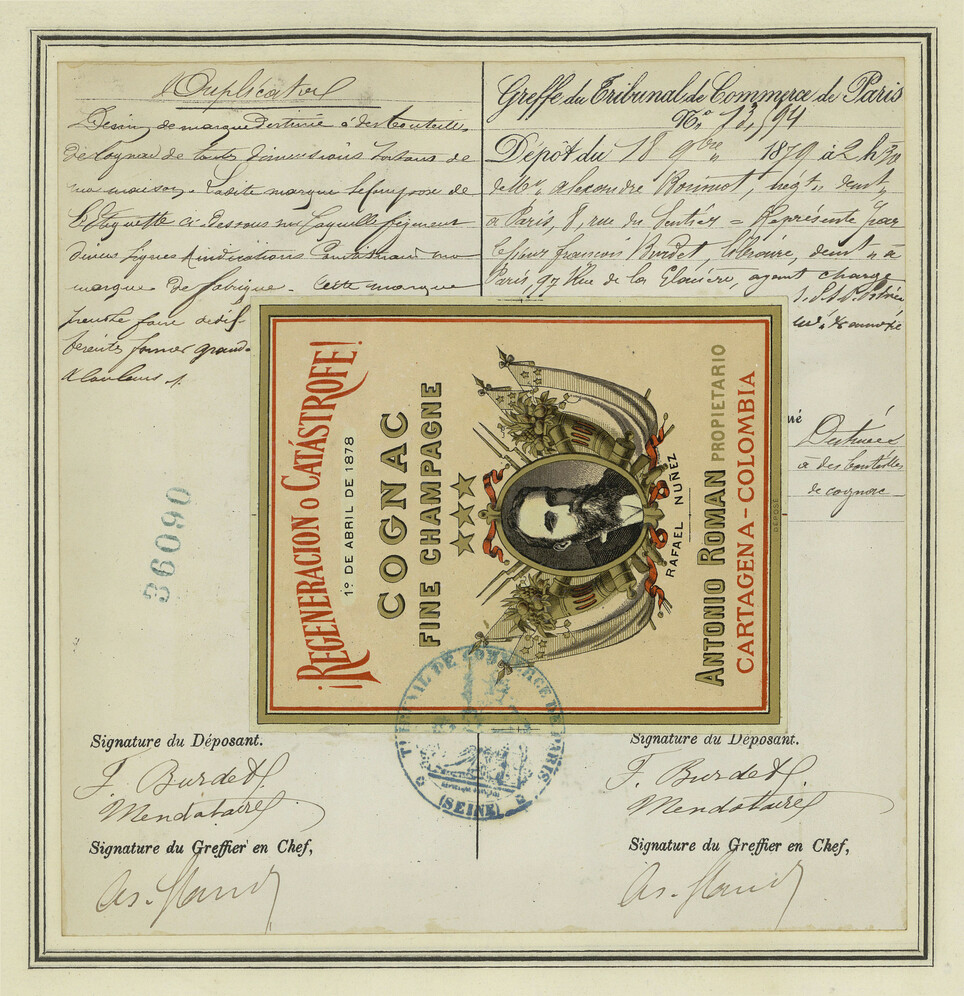 Duplicata
Dessin de marque destinée à des bouteilles
de Cognac de toutes dimensions sortant de
ma maison. Ladite marque se compose de
l'Etiquette ci-dessous sur laquelle figurent
divers signes & indications constituant ma
marque de fabrique. Cette marque
pourra être faite de dif-
férentes formes grand.
& couleurs
Greffe du Tribunal de Commerce de Paris
No 13,594
Dépôt du 18 9bre 1879 à 2 h 30
de Mr Alexandre negt, demt
à Paris, 8, rue du Sentier = Représenté par
le sieur françois Burdet, libraire, demt à
Paris, 97 Rue de la Glacière, ayant charge
Destinées
à des bouteilles
de cognac
36090
¡REGENERACION O CATÁSTROFE!
1º DE ABRIL DE 1878
COGNAC
FINE CHAMPAGNE
RAFAEL NUÑEZ
ANTONIO ROMAN PROPIETARIO
CARTAGENA - COLOMBIA
DÉPOSÉ
TRIBUNAL DE COMMERCE DE PARIS
(SEINE)
Signature du Déposant.
F. Burdet
Mendataire
Signature du Greffier en Chef,
Signature du Déposant.
F. Burdet
Mendataire
Signature du Greffier en Chef,